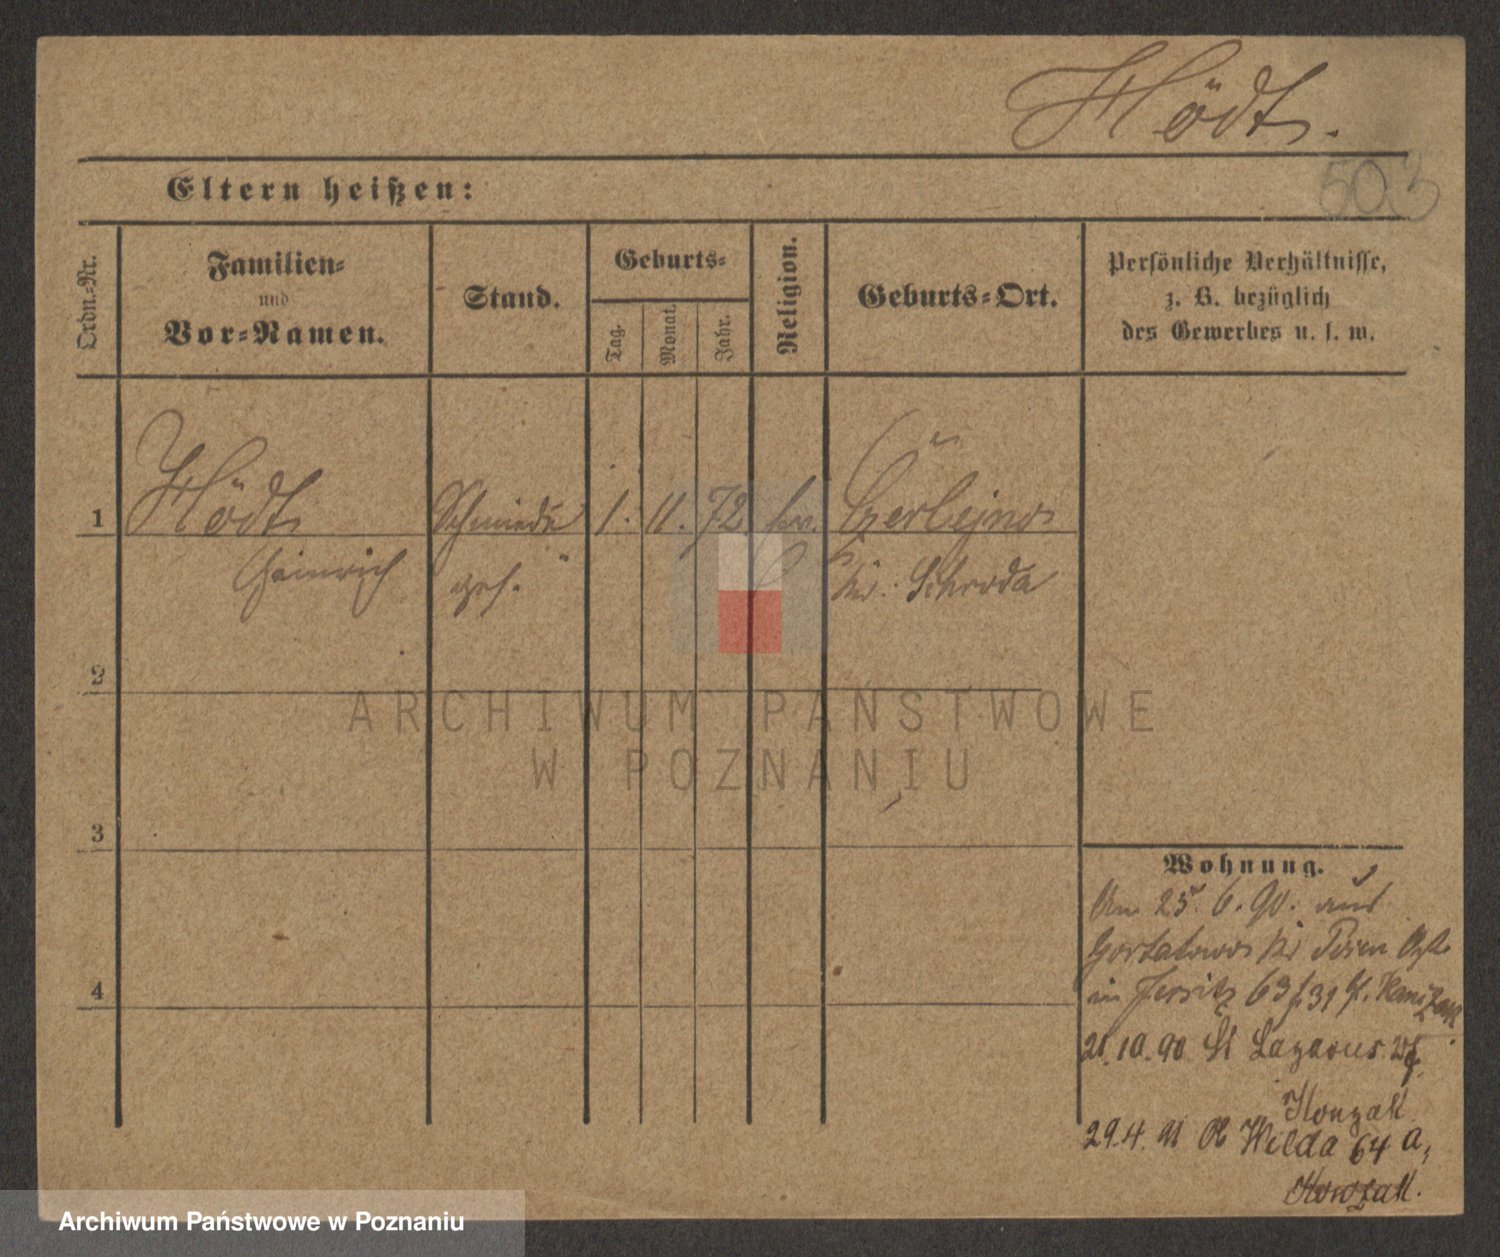 Hödt.
503
Eltern heißen:
Ordn.-Nr.
Familien-
und
Vor-Namen.
Stand.
Geburts-
Tag.
Monat.
Jahr.
Religion.
Geburts-Ort.
Persönliche Verhältnisse,
z. B. bezüglich
des Gewerbes u. s. w.
1
Hödt
Schmiede
1. 11. 72
ev.
Gerlejno
Heinrich
ges.
Kr. Schroda
2
ARCHIWUM PAŃSTWOWE
W POZNANIU
3
Wohnung.
Am 25. 6. 90. aus
Gortatowo Kr Posen
in Jersitz 69
21. 10. 90 St Lazarus
4
Konzak
29. 4. 91 Wilda 64 a,
Konzak.
Archiwum Państwowe w Poznaniu